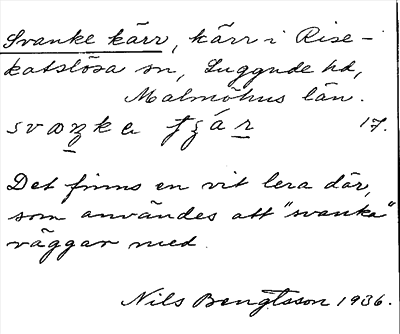 Svanke kärr, kärr i Rise-
katslösa sn, Luggude hd,
Malmöhus län.
17.
Det finns en vit lera där,
som användes att "svanka"
väggar med.
Nils Bengtsson 1936.